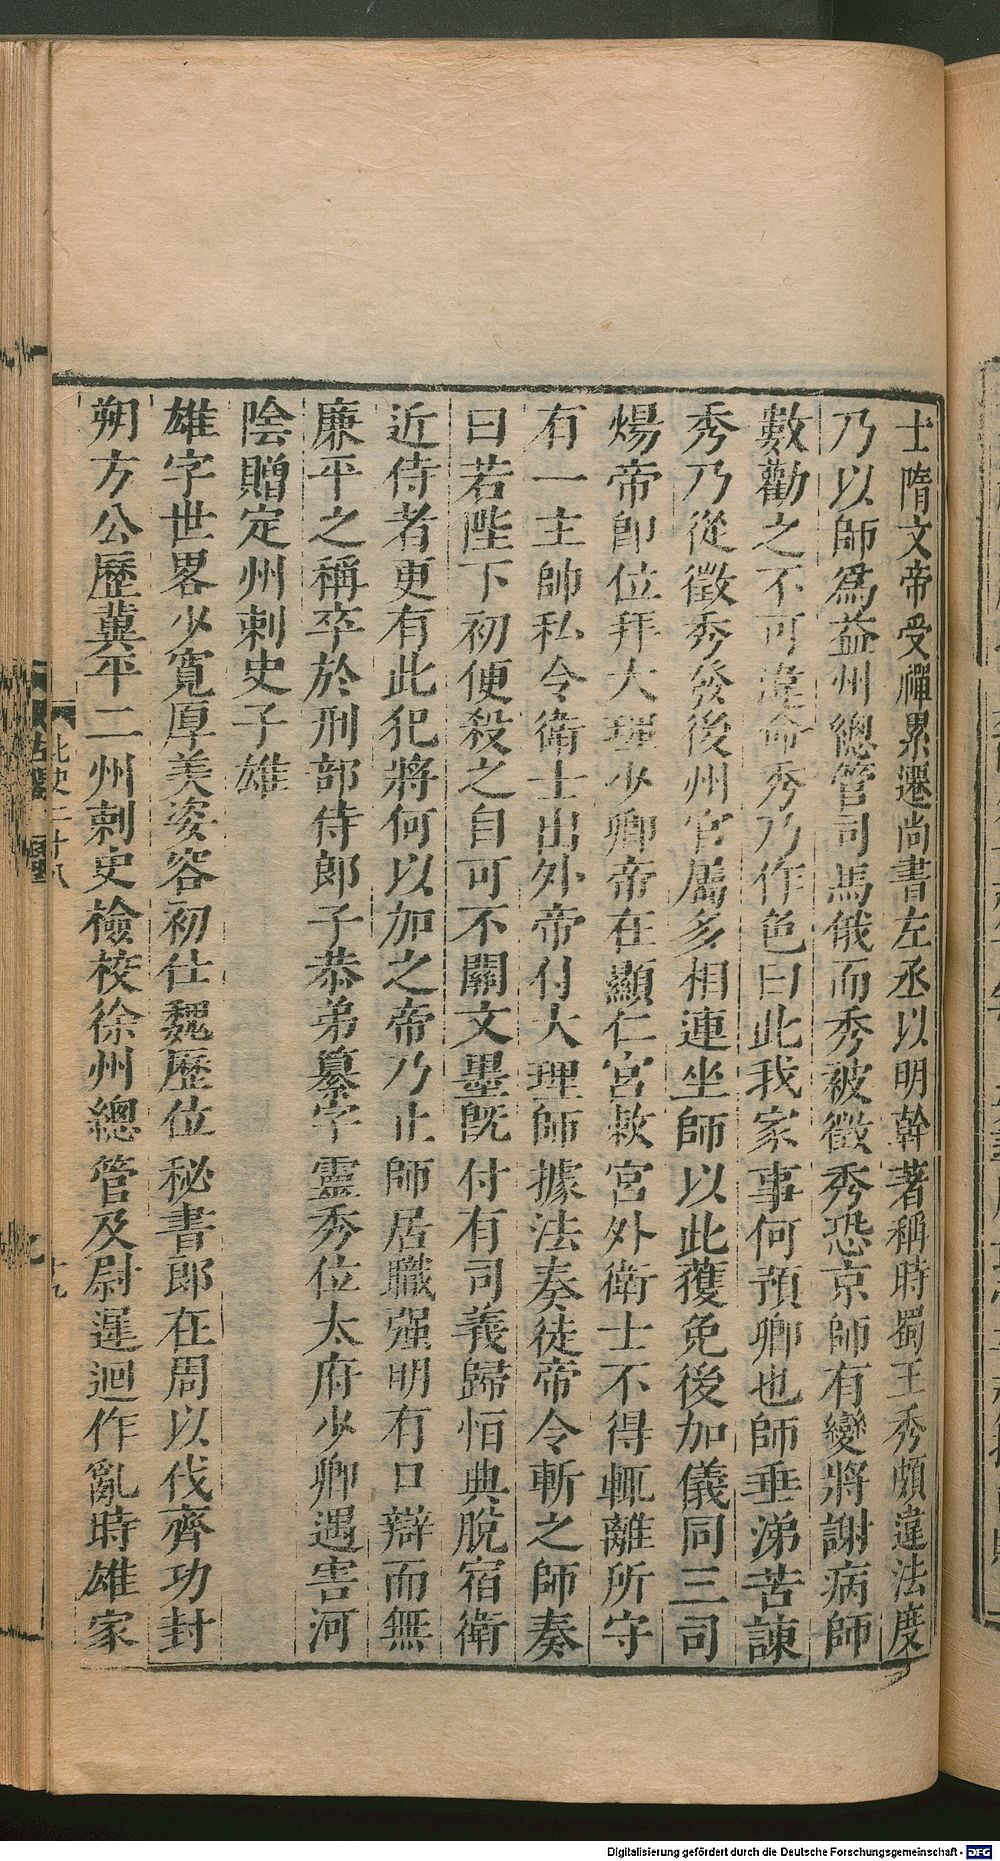 士隋文帝受禪累遷尚書左丞以明幹著稱時蜀王秀頗違法度
乃以師爲益州總管司馬俄而秀被徵秀恐京師有變將謝病師
數勸之不可違命秀乃作色曰此我家事何預卿也師垂涕苦諫
秀乃從徵秀發後州官屬多相連坐師以此獲免後加儀同三司
煬帝即位拜大理少卿帝在顯仁宮敕宮外衛士不得輒離所守
有一主帥私令衛士出外帝付大理師據法奏徒帝令斬之師奏
曰若陛下初便殺之自可不關文墨旣付有司義歸恒典脫宿衛
近侍者更有此犯將何以加之帝乃止師居職强明有口辯而無
廉平之稱卒於刑部侍郎子恭弟纂字靈秀位太府少卿遇害河
陰贈定州刺史子雄
雄字世畧少寬厚美姿容初仕魏歷位秘書郎在周以伐齊功封
朔方公歷冀平二州刺史檢校徐州總管及尉遲迥作亂時雄家
北史二十八
十九
Digitalisierung gefördert durch die Deutsche Forschungsgemeinschaft - DFG